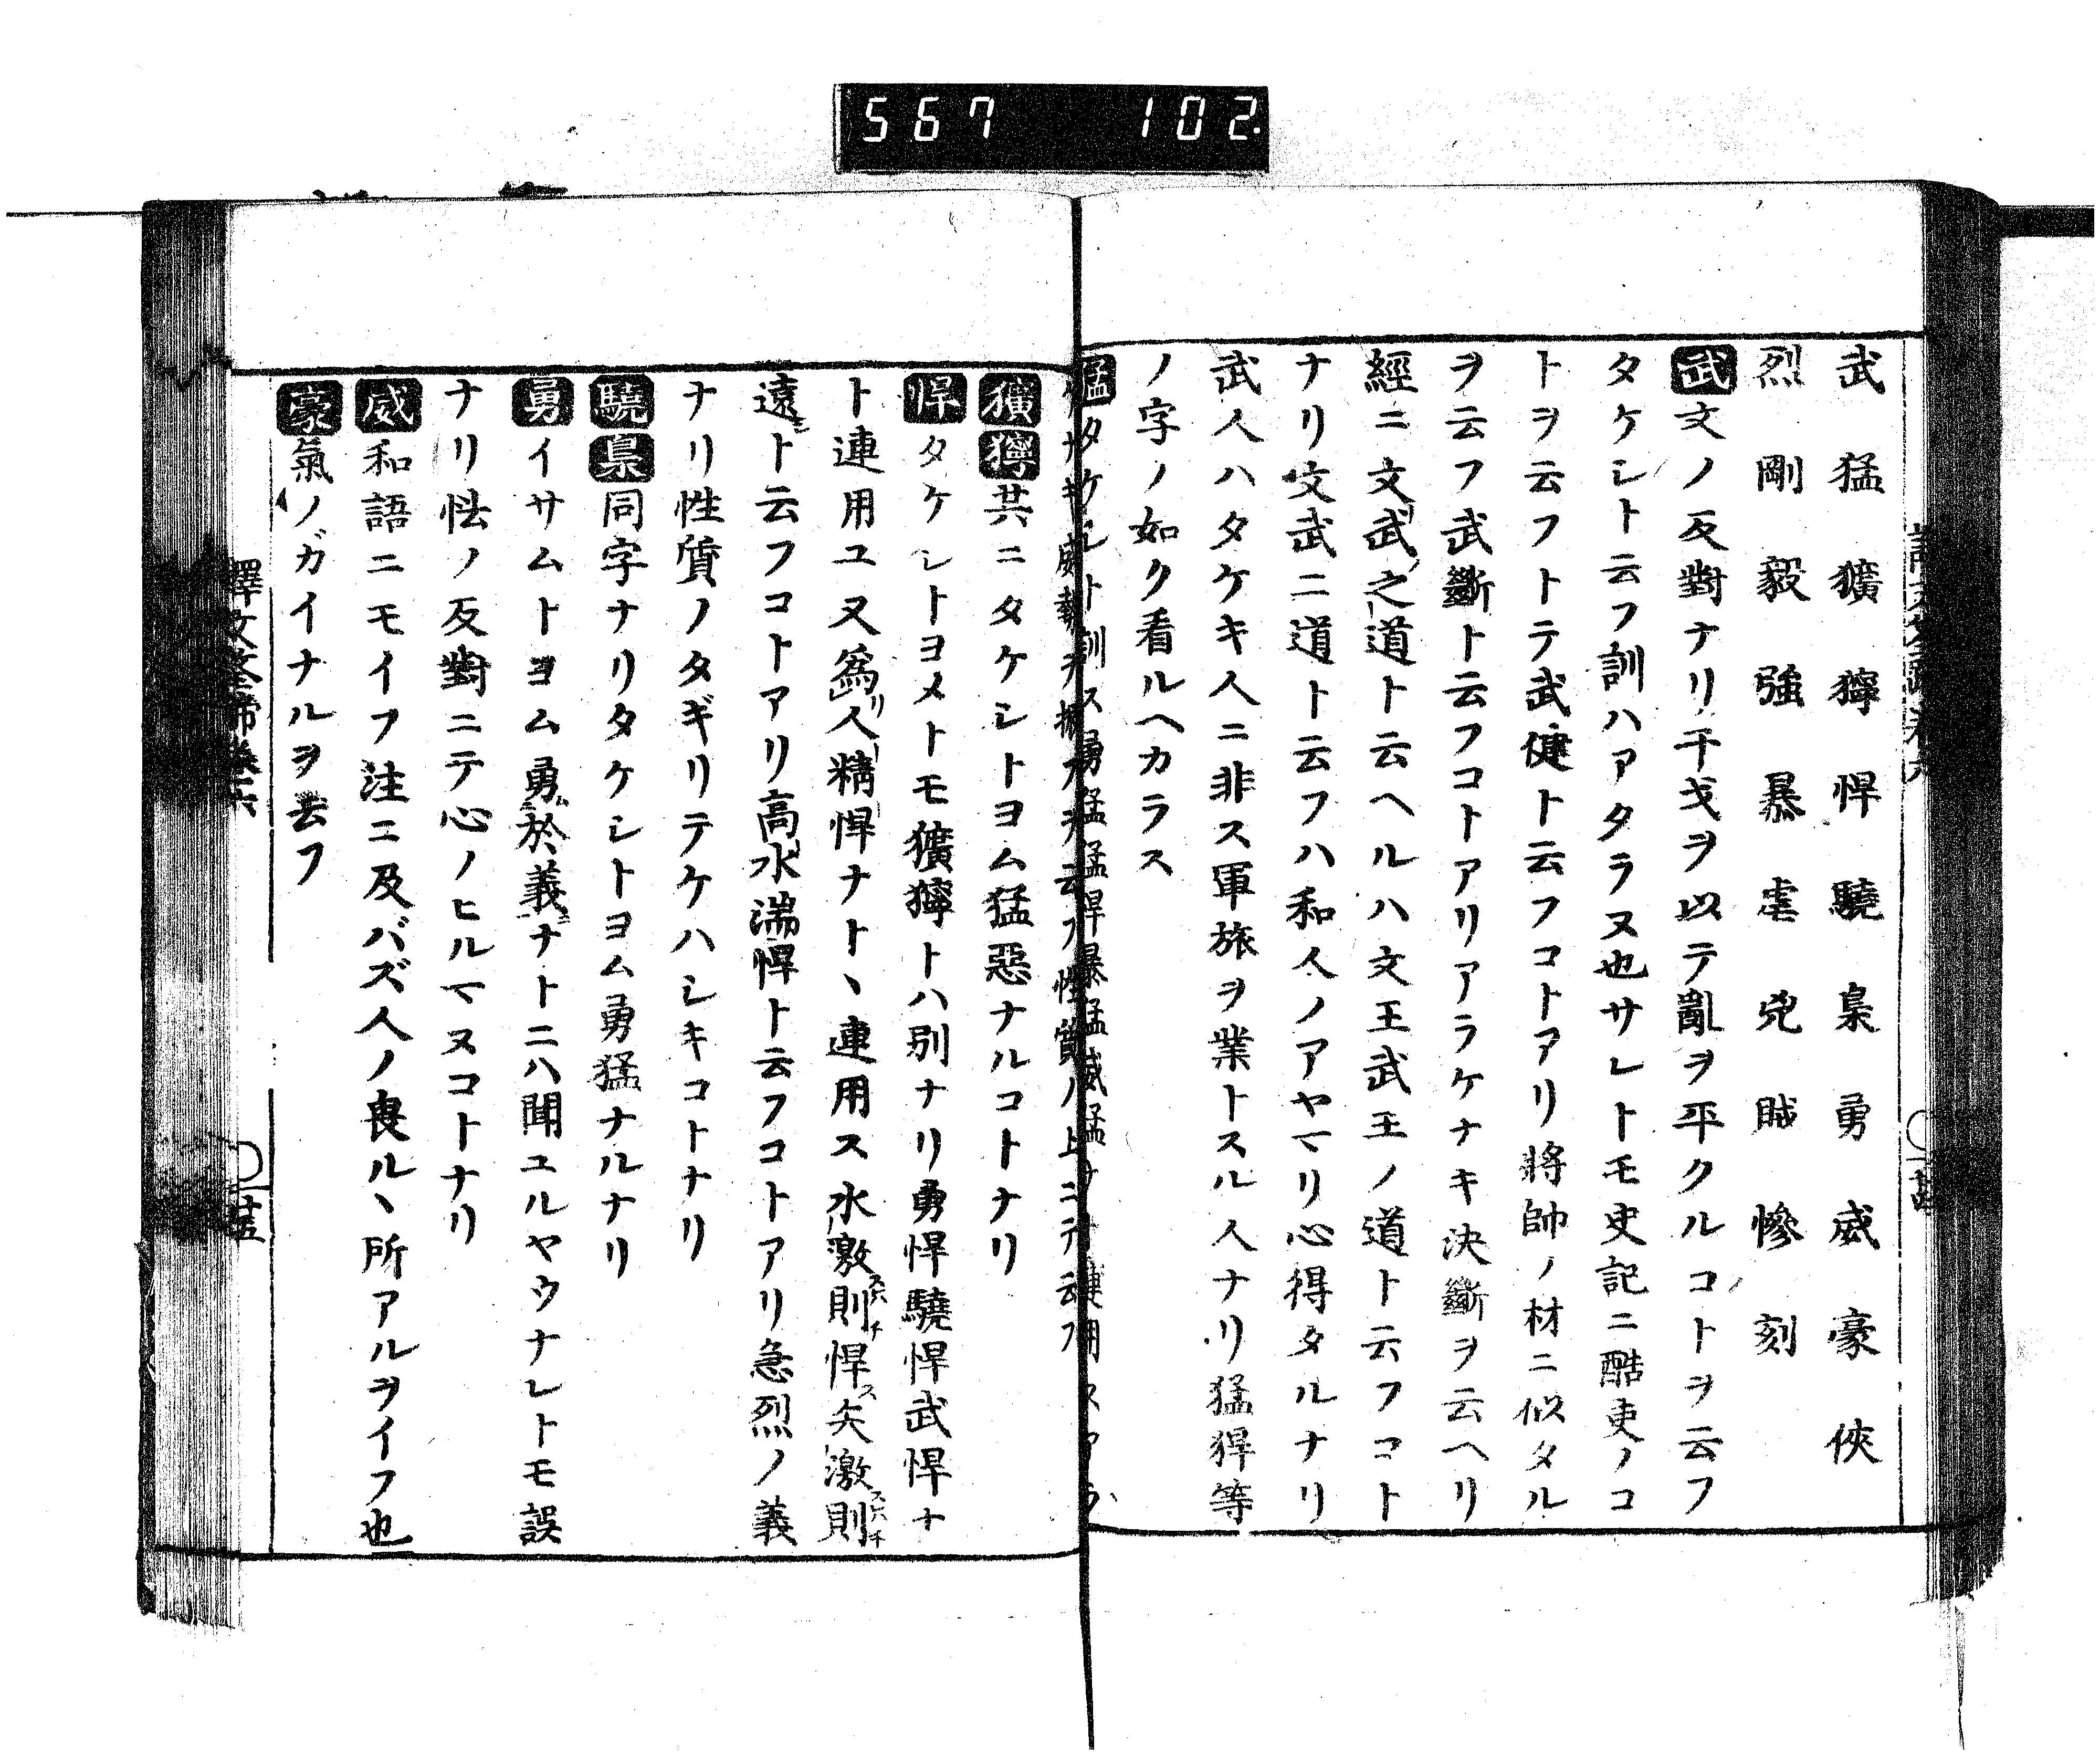 567 102.
武猛獷獰悍驍梟勇威豪俠
烈剛毅強暴虐兇賊慘刻
武文ノ反對ナリ干戈ヲ以テ亂ヲ平クルコトヲ云フ
タケシト云フ訓ハアタラヌ也サレトモ史記ニ酷吏ノコ
トヲ云フトテ武健ト云フコトアリ將帥ノ材ニ似タル
ヲ云フ武斷ト云フコトアリアラケナキ決斷ヲ云ヘリ
經ニ文武之道ト云ヘルハ文王武王ノ道ト云フコト
ナリ文武二道ト云フハ和人ノアヤマリ心得タルナリ
武人ハタケキ人ニ非ス軍旅ヲ業トスル人ナリ猛猂等
ノ字ノ如ク看ルヘカラス
猛タケシト訓ス勇猛猛悍暴猛威猛ナ
性質ノ上ニテ云フ
獷獰共ニタケシトヨム猛惡ナルコトナリ
悍タケシトヨメトモ獷獰トハ別ナリ勇悍驍悍武悍ナ
ト連用ユ又爲人精悍ナトヽ連用ス水激則悍矢激則
遠ト云フコトアリ高水湍悍ト云フコトアリ急烈ノ義
ナリ性質ノタギリテケハシキコトナリ
驍梟同字ナリタケシトヨム勇猛ナルナリ
勇イサムトヨム勇於義ナトニハ聞ユルヤウナレトモ誤
ナリ怯ノ反對ニテ心ノヒルマヌコトナリ
威和語ニモイフ注ニ及バズ人ノ畏ルヽ所アルヲイフ也
豪氣ノガイナルヲ云フ
譯文筌蹄卷六